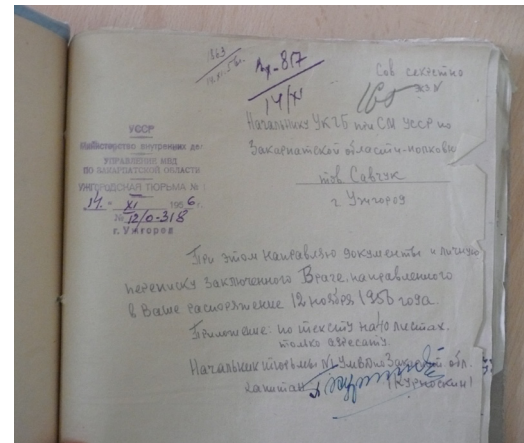 1363
14.XI.56г.
Вх-817
14/XI
Сов секретно
экз N
УССР
Министерство внутренних дел
УПРАВЛЕНИЕ МВД
ПО ЗАКАРПАТСКОЙ ОБЛАСТИ
УЖГОРОДСКАЯ ТЮРЬМА №
14 XI 1956 г.
№ 12/0-318
г. Ужгород
Начальнику УКГБ при СМ УССР по
Закарпатской области-полковн
тов Савчук
г Ужгород
При этом направляю документы и личную
переписку заключенного Враге, направленного
в Ваше распоряжение 12 ноября 1956 года.
Приложение: по тексту на 40 листах.
только адресату.
Начальник тюрьмы №1 УМВД по Закарпат обл.
капитан (Курноскин)